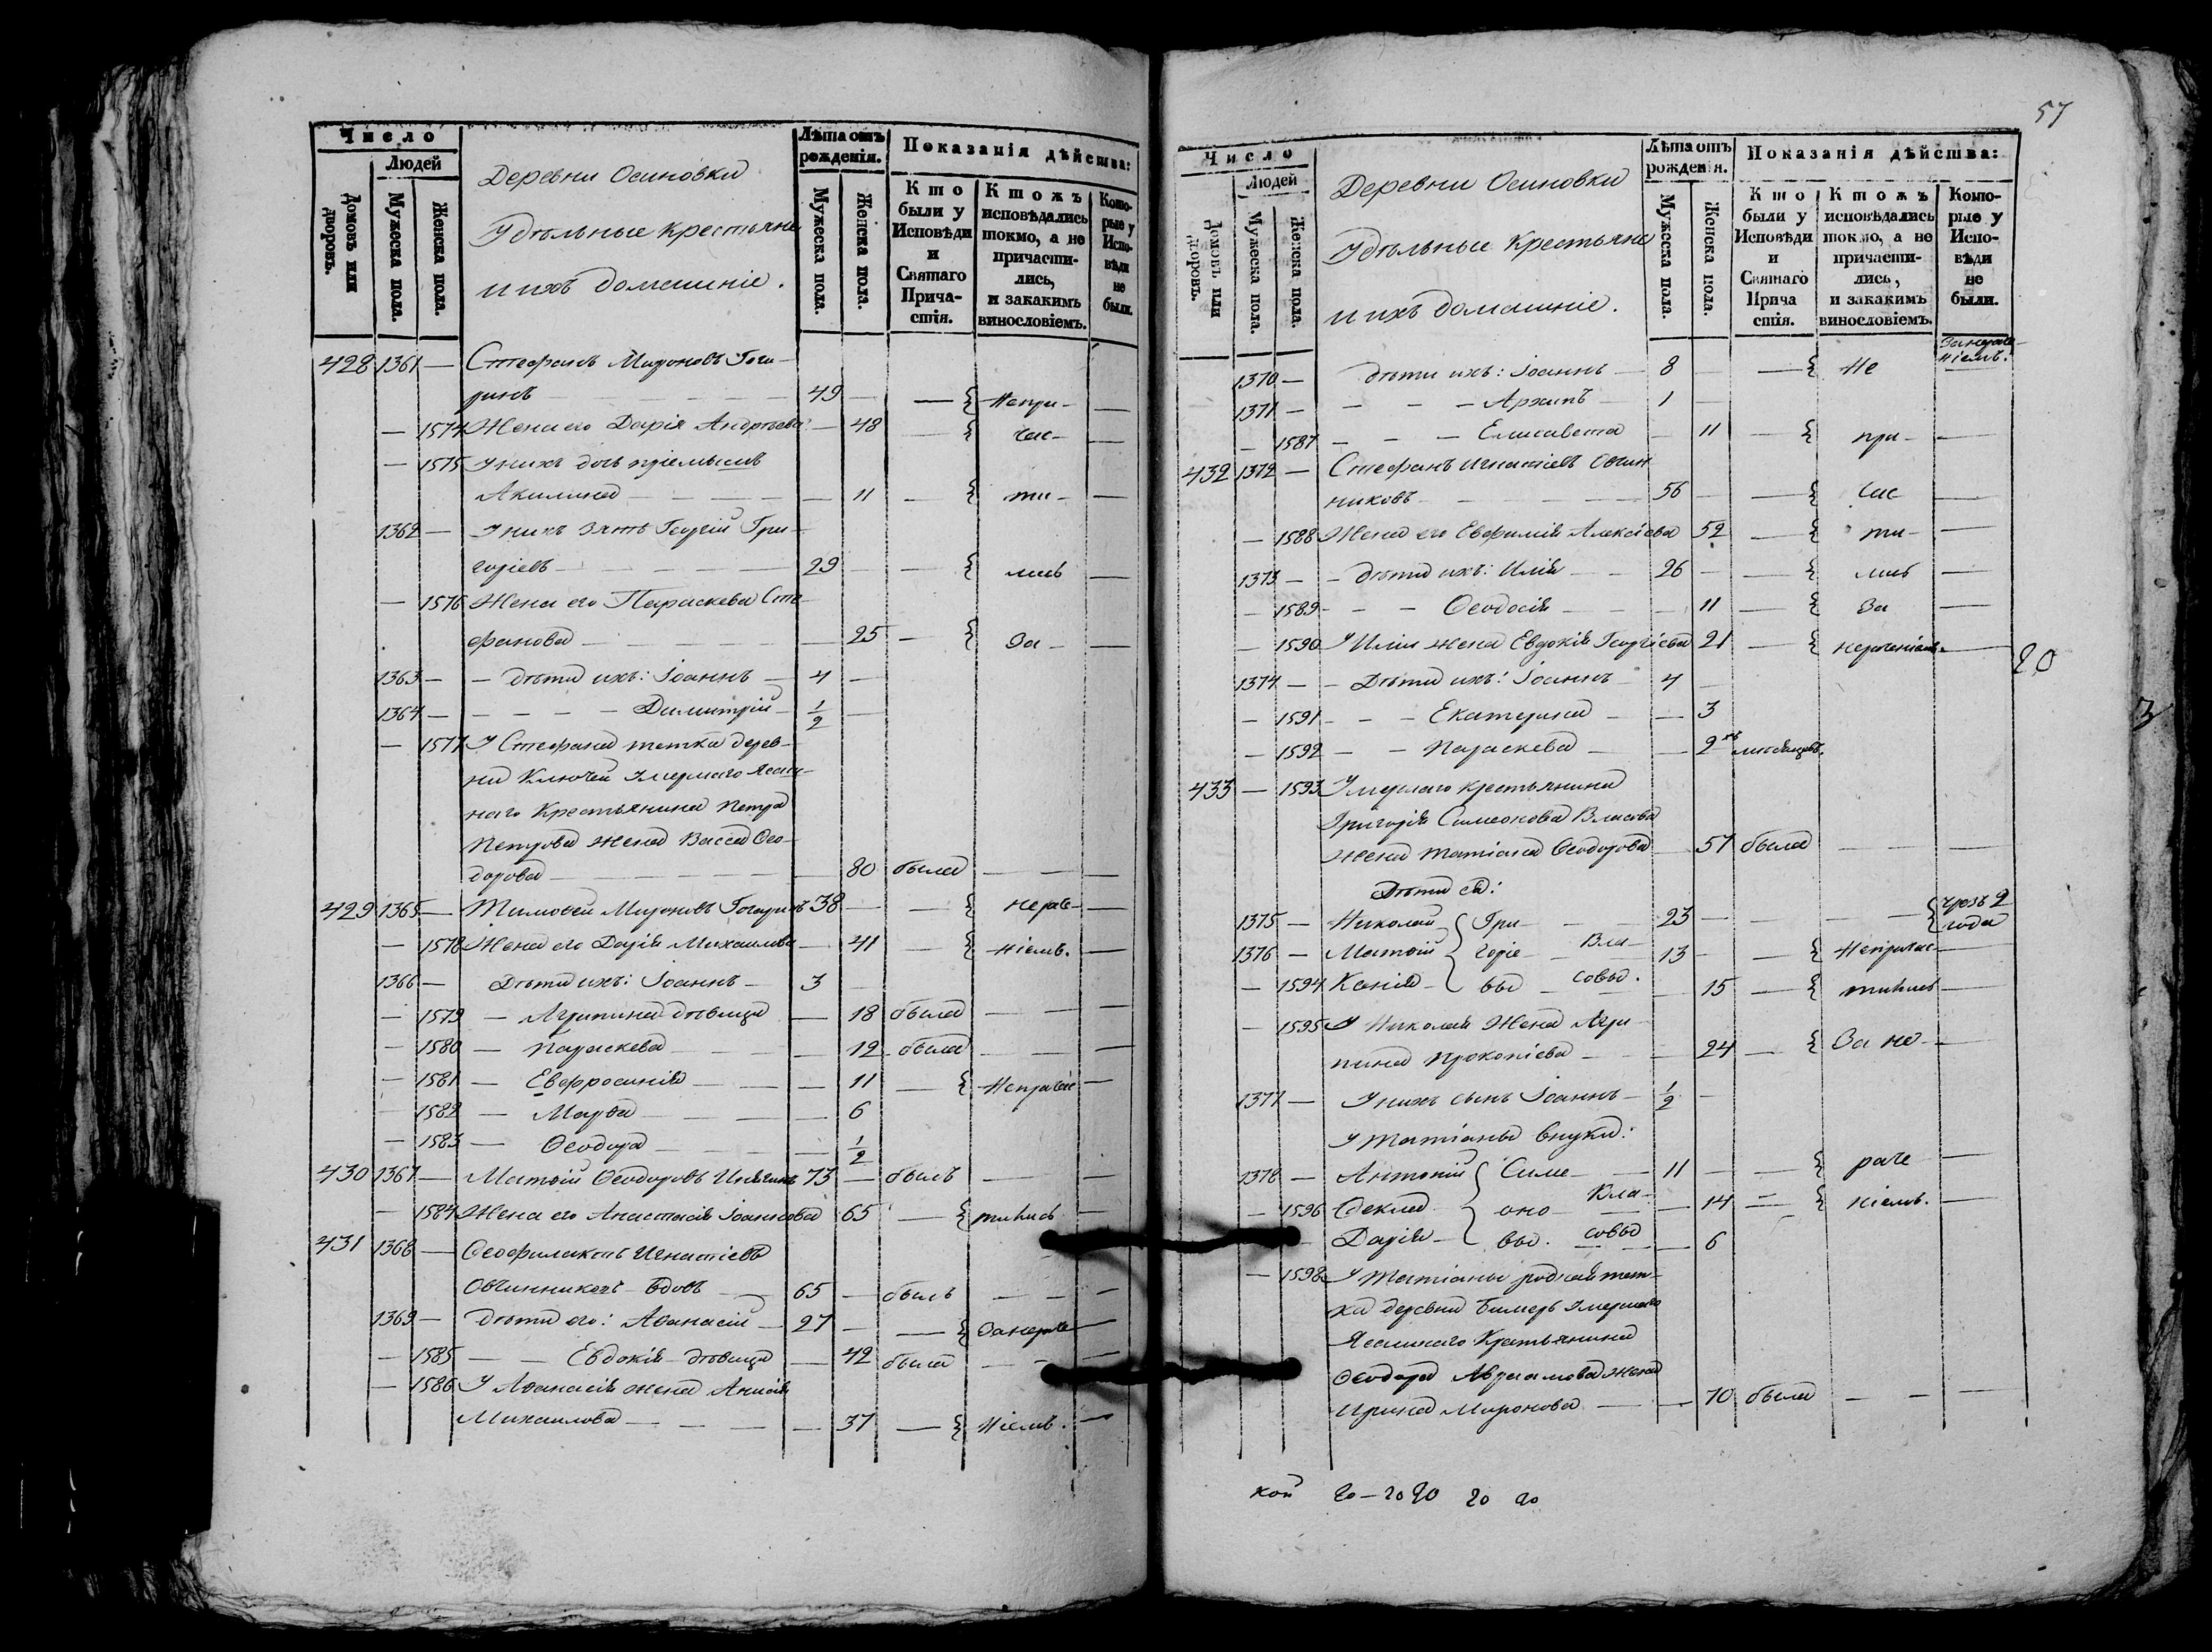 Число
Людей
Домовъ или дворовъ.
Мужеска пола.
Женска пола.
Деревни Осиновки
Удѣльные крестьяне
и ихъ домашніе.
Лѣта отъ рожденія.
Мужеска пола.
Женска пола.
Показанія дѣйства:
Кто были у Исповѣди и Святаго Причастія.
Ктожъ исповѣдались токмо, а не причастились, и закакимъ винословіемъ.
Которые у Исповѣди не были.
428 1361 — Стефанъ Мироновъ Гога-
ринъ — 49 — — { Непри- —
— 1574 Жена его Дарія Андреева — 48 — { час- —
— 1575 У нихъ дочь пріемышъ
Акилина — — 11 — { ти- —
1362 — У нихъ зять Георгій Гри-
горіевъ — 29 — { лись —
— 1576 Жена его Параскева Сте-
фанова — — 25 — { За- —
1363 — — дѣти ихъ: Іоаннъ — 4 —
1364 — — — — Димитрій — 1/2 —
— 1577 У Стефана тетка дерев-
ни Ключей умершаго Ясаш-
наго Крестьянина Петра
Петрова жена Васса Ѳео-
дорова — — 80 была — —
429 1365 — Тимоѳей Мироновъ Гогаринъ 38 — — { нераче- —
— 1578 Жена его Дарія Михаилова — 41 — { ніемъ. —
1366 — Дѣти ихъ: Іоаннъ — 3 —
— 1579 — Агрипина дѣвица — 18 была — —
— 1580 — Параскева — 12 была — —
— 1581 — Евфросинія — — 11 — { Непричас —
— 1582 — Марѳа — 6
— 1583 — Ѳеодора — — 1/2
430 1367 — Матѳій Ѳеодоровъ 73 — былъ — —
— 1584 Жена его Анастасія Іоаннова 65 — { тились —
431 1368 — Ѳеофилактъ Игнатіевъ
Овчинниковъ вдовъ — 65 — былъ — —
1369 — дѣти его: Аѳанасій — 27 — — { Занераче —
— 1585 — — Евдокія дѣвица — 42 была — —
— 1586 У Аѳанасія жена Анисія
Михаилова — — — 37 — { ніемъ. —
57
Число
Людей
Домовъ или дворовъ.
Мужеска пола.
Женска пола.
Деревни Осиновки
Удѣльные крестьяне
и ихъ домашніе.
Лѣта отъ рожденія.
Мужеска пола.
Женска пола.
Показанія дѣйства:
Кто были у Исповѣди и Святаго Прича стія.
Ктожъ исповѣдались токмо, а не причастились, и закакимъ винословіемъ.
Которые у Исповѣди не были.
Занераче-
ніемъ.
1370 — дѣти ихъ: Іоаннъ — 8 — — { Не —
1371 — — — — Архипъ — 1 —
— 1587 — — — Елисавета — 11 — { при- —
432 1372 — Стефанъ Игнатіевъ Овчин
никовъ — 56 — — { час —
— 1588 Жена его Евфимія Алексіева 52 — { ти- —
1373 — — дѣти ихъ: Илія — 26 — — { лись —
— 1589 — — Ѳеодосія — — 11 — { За —
— 1590 У Иліи жена Евдокія Георгіева 21 — { нераченіемъ. —
20
1374 — — Дѣти ихъ: Іоаннъ 4 —
— 1591 — — Екатерина — — 3
— 1592 — — Параскева — — 2хъ мѣсяцовъ.
433 — 1593 Умершаго крестьянина
Григорія Симеонова Власова
жена Татіана Ѳеодорова — 57 была — —
Дѣти ея:
1375 — Николай { Гри- — 23 — — — { чрезъ 2 года
1376 — Матѳій { горіе- Вла- 13 — — { Непричас —
— 1594 Ксенія { вы совы. — 15 — { тились —
— 1595 У Николая жена Агри-
пина Прокопіева — — 24 — { За не- —
1377 — У нихъ сынъ Іоаннъ — 1/2 —
У Татіаны внуки:
1378 — Антоній { Симе- — 11 — — { раче —
— 1596 Ѳекла { оно- Вла- — 14 — { ніемъ. —
— Дарія { вы. совы — 6
— 1598 У Татіаны родная тет-
ка деревни умершаго
Ясашнаго Крестьянина
Ѳеодора Авраамова жена
Ирина Миронова — — 70 была — — —
20 — 20 20 20 20